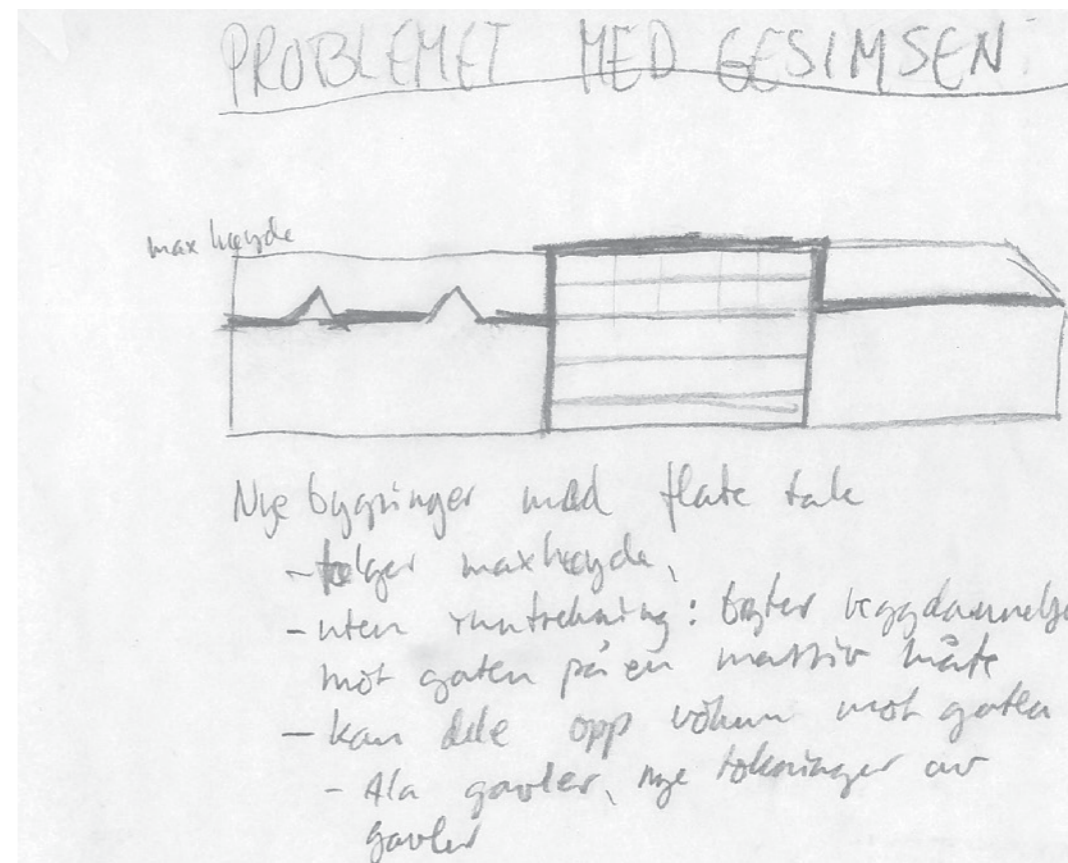 PROBLEMET MED GESIMSEN:
max høyde
Nye bygninger med flate tak
- følger maxhøyde,
- uten inntrekning: bryter veggdannelse
mot gaten på en massiv måte
- kan dele opp volum mot gaten
- Ala gavler, nye tolkninger av
gavler